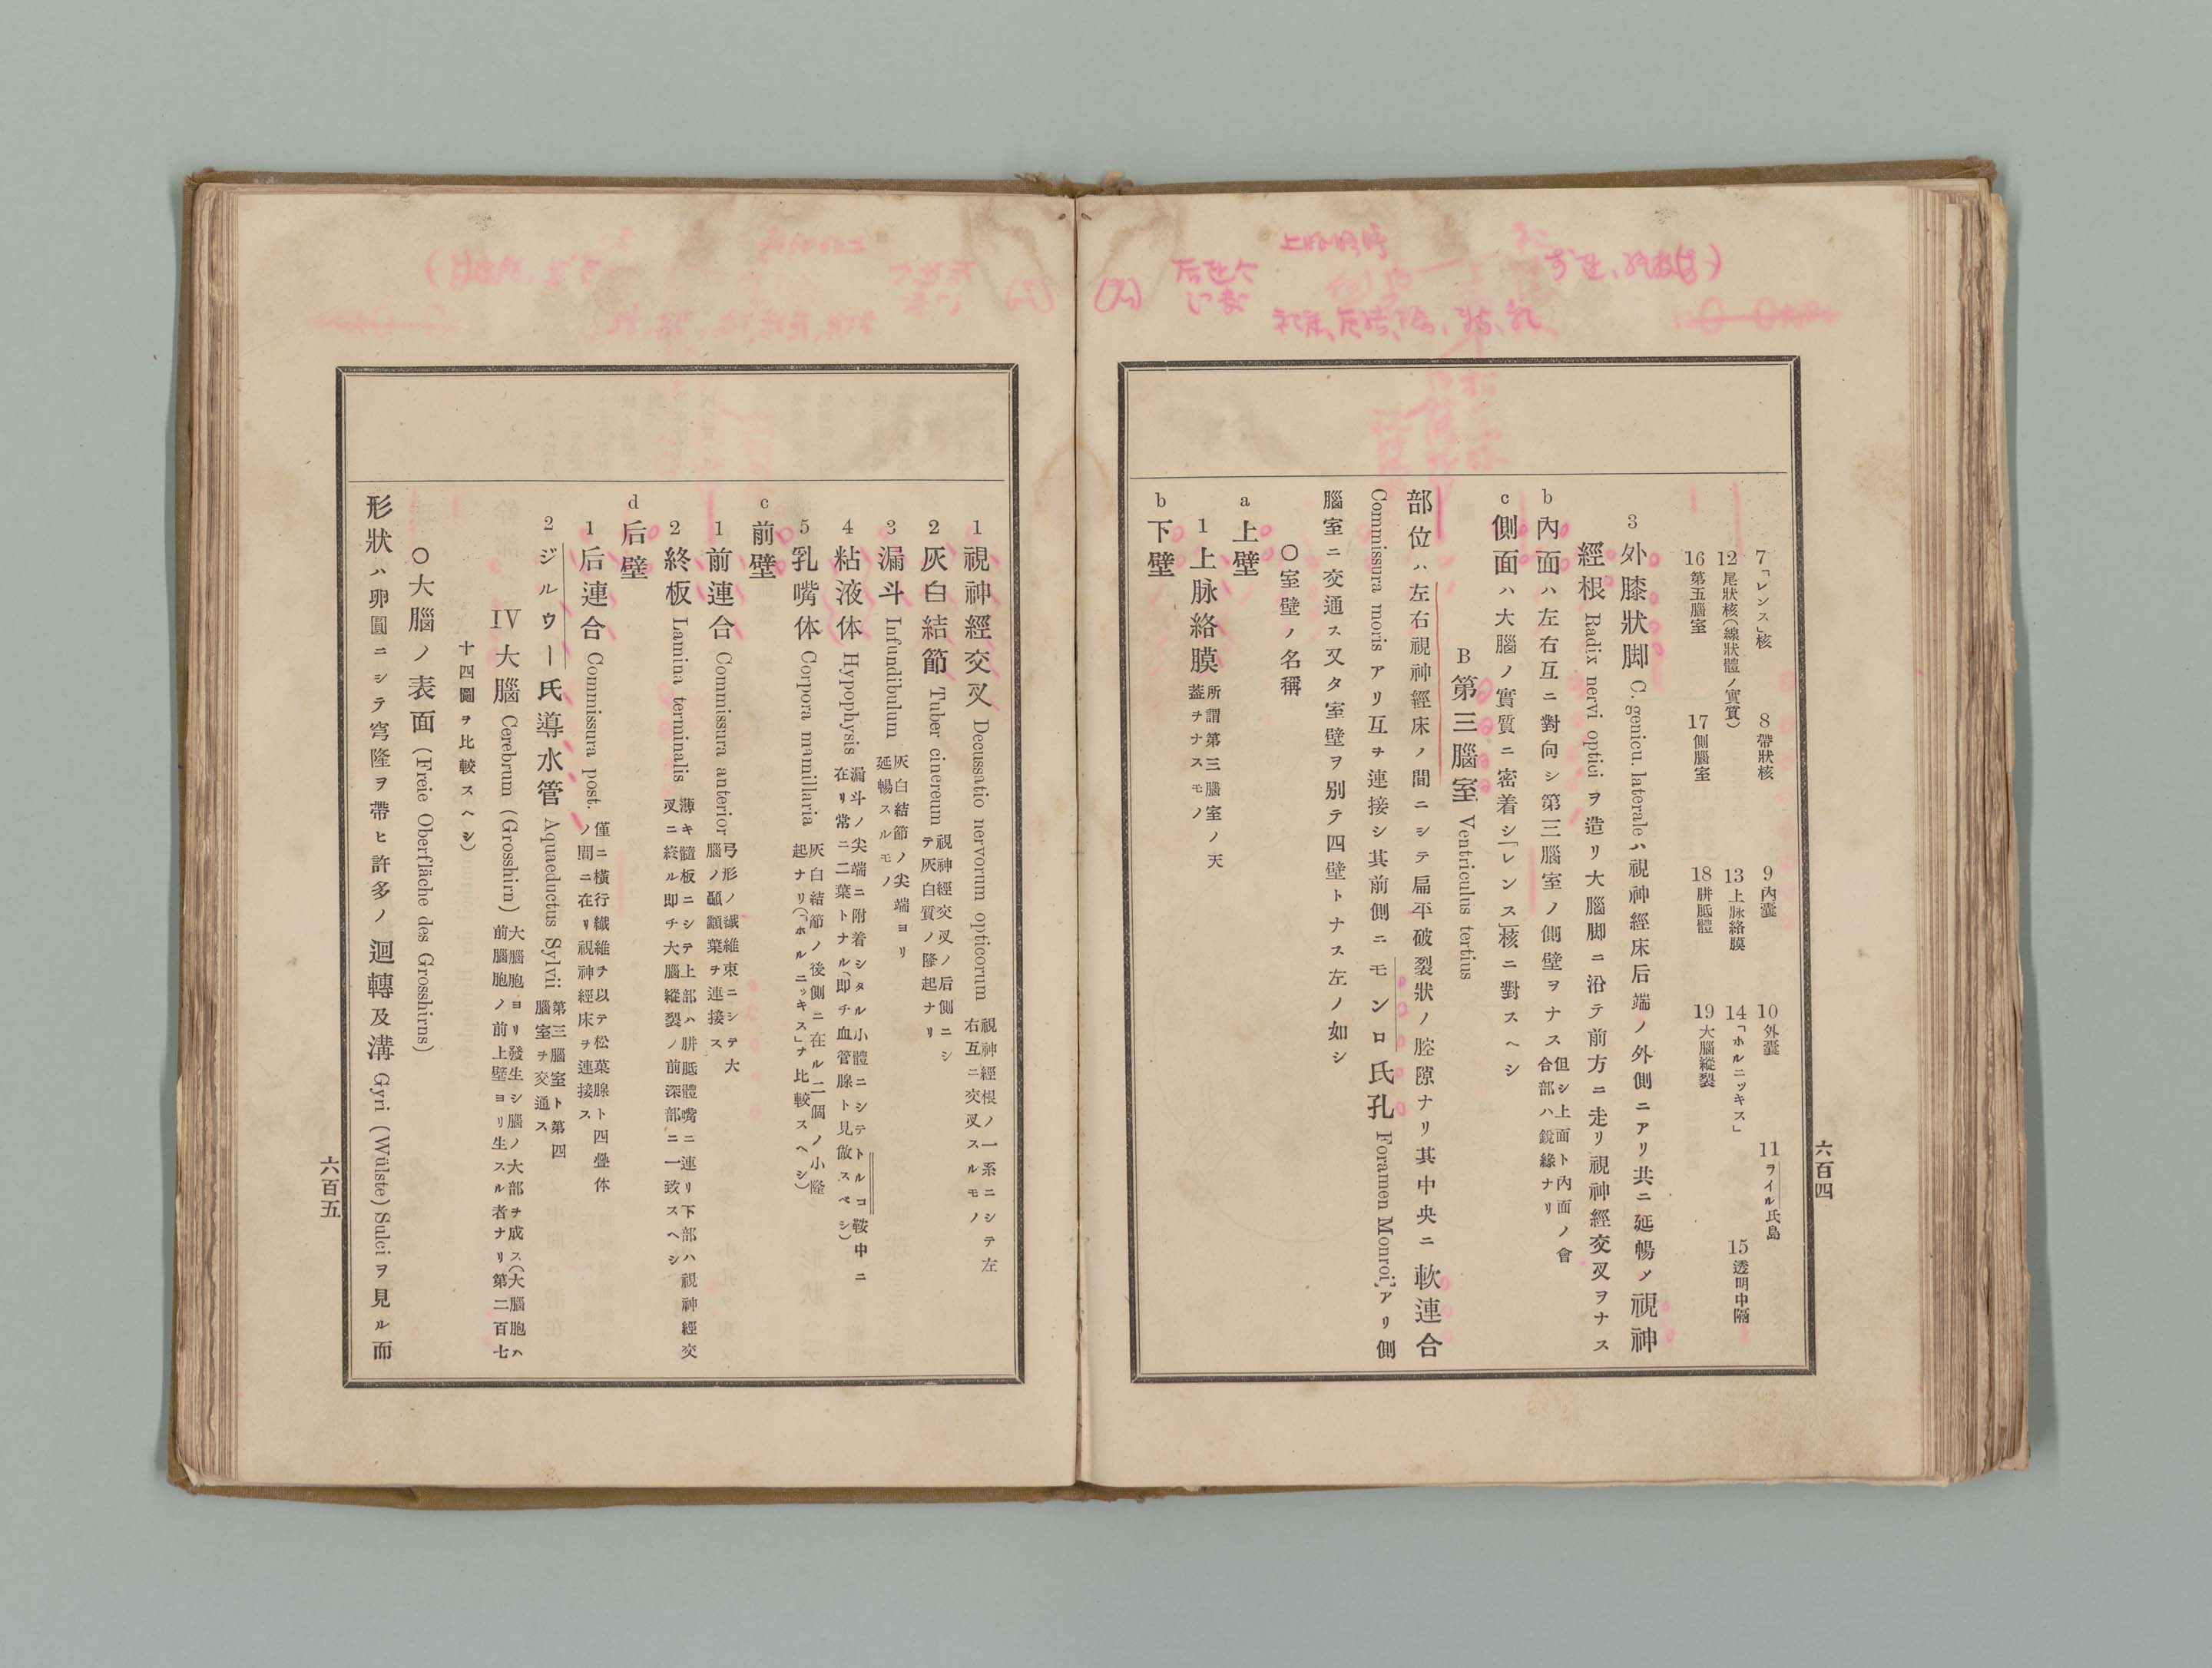 7「レンス」核 8帶狀核 9內囊 10外囊 11ヲイル氏島
12尾狀核(線狀體ノ實質) 13上脉絡膜 14「ホルニッキス」 15透明中隔
16第五腦室 17側腦室 18胼胝體 19大腦縱裂
3外膝狀脚 C. genicu. laterale ハ視神經床后端ノ外側ニアリ共ニ延暢シ視神
經根 Radix nervi optici ヲ造リ大腦脚ニ沿テ前方ニ走リ視神經交叉ヲナス
b內面ハ左右互ニ對向シ第三腦室ノ側壁ヲナス 但シ上面ト內面ノ會
合部ハ銳緣ナリ
c側面ハ大腦ノ實質ニ密着シ「レンス」核ニ對スヘシ
B第三腦室 Ventriculus tertius
部位ハ左右視神經床ノ間ニシテ扁平破裂狀ノ腔隙ナリ其中央ニ軟連合
Commissura moris アリ互ヲ連接シ其前側ニモンロ氏孔 Foramen Monroi アリ側
腦室ニ交通ス又タ室壁ヲ別テ四壁トナス左ノ如シ
○室壁ノ名稱
a上壁
1上脉絡膜 所謂第三腦室ノ天
蓋ヲナスモノ
b下壁
六百四
1視神經交叉 Decussatio nervorum opticorum 視神經根ノ一系ニシテ左
右互ニ交叉スルモノ
2灰白結節 Tuber cinereum 視神經交叉ノ后側ニシ
テ灰白質ノ隆起ナリ
3漏斗 Infundibulum 灰白結節ノ尖端ヨリ
延暢スルモノ
4粘液体 Hypophysis 漏斗ノ尖端ニ附着シタル小體ニシテトルコ鞍中ニ
在リ常ニ二葉トナル(即チ血管腺ト見做スベシ)
5乳嘴体 Corpora mamillaria 灰白結節ノ後側ニ在ル二個ノ小隆
起ナリ(「ホルニッキス」ナ比較スヘシ)
c前壁
1前連合 Commissura anterior 弓形ノ纖維束ニシテ大
腦ノ顳顬葉ヲ連接ス
2終板 Lamina terminalis 薄キ髓板ニシテ上部ハ胼胝體嘴ニ連リ下部ハ視神經交
叉ニ終ル即チ大腦縱裂ノ前深部ニ一致スヘシ
d后壁
1后連合 Commissura post. 僅ニ橫行纖維ヲ以テ松菓腺ト四疊体
ノ間ニ在リ視神經床ヲ連接ス
2ジルウー氏導水管 Aquaeductus Sylvii 第三腦室ト第四
腦室ヲ交通ス
IV大腦 Cerebrum (Grosshirn) 大腦胞ヨリ發生シ腦ノ大部ヲ成ス(大腦胞ハ
前腦胞ノ前上壁ヨリ生スル者ナリ第二百七
十四圖ヲ比較スヘシ)
○大腦ノ表面 (Freie Oberfläche des Grosshirns)
形狀ハ卵圓ニシテ穹隆ヲ帶ヒ許多ノ迴轉及溝 Gyri (Wülste) Sulci ヲ見ル而
六百五